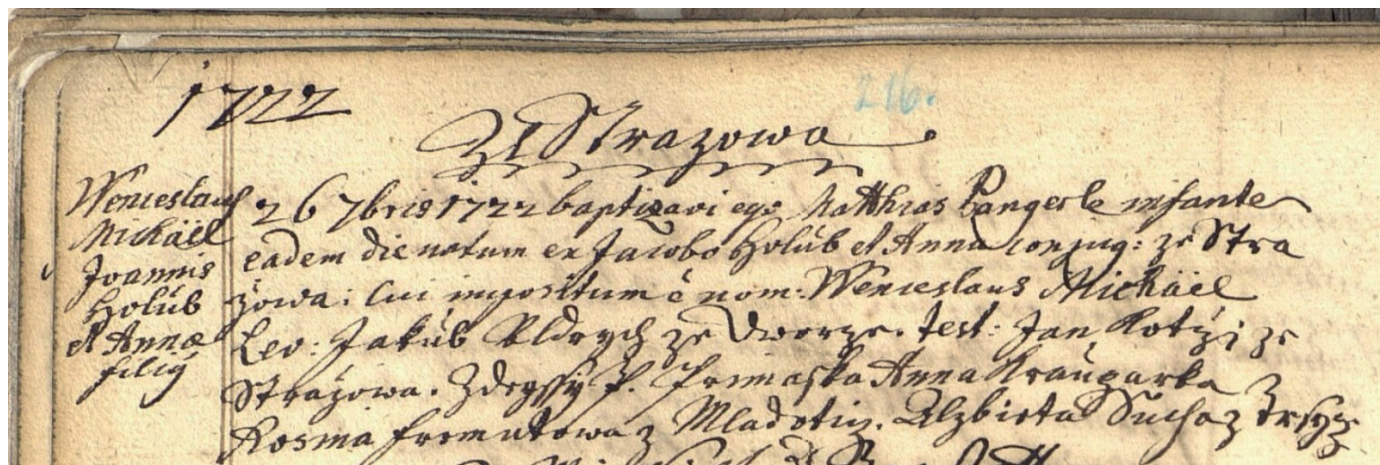 1722
216.
Ze Strazowa
Wenceslaus
Michäel
Joannis
Holúb
et Annæ
filiÿ
26 7bris 1722 baptizavi ego Matthias Pangerle infante
eadem die natum ex Jacobo Holúb et Anna conjug: ze Stra
zowa: cui impositum è nom: Wenceslaus Michäel
Lev: Jakúb Oldrych ze Dworze. test: Jan Kotyz ze
Strazowa. Zdegssÿ P. Primasska Anna
Rosina z Mladotiz. Alzbieta Sucha z